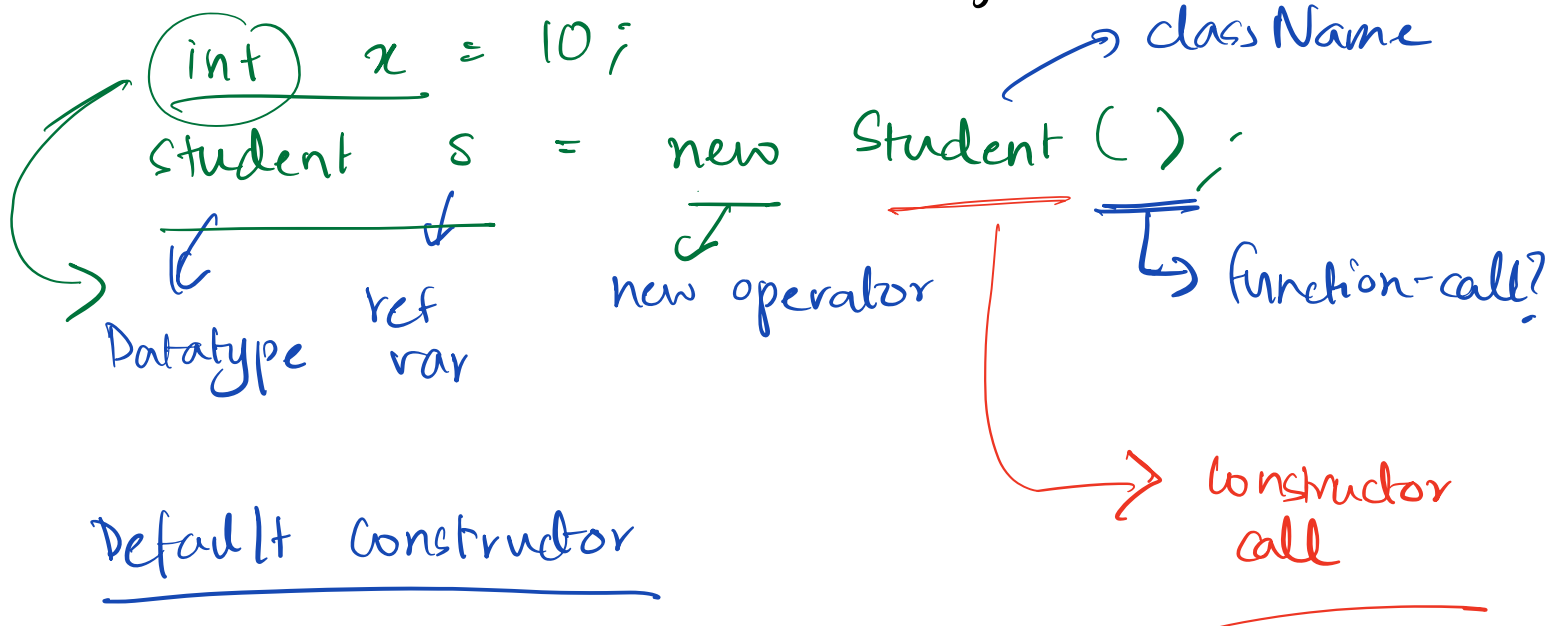 int x = 10;
className
student s = new Student ( ) ;
Datatype
ref
var
new operator
function-call?
constructor
call
Default constructor